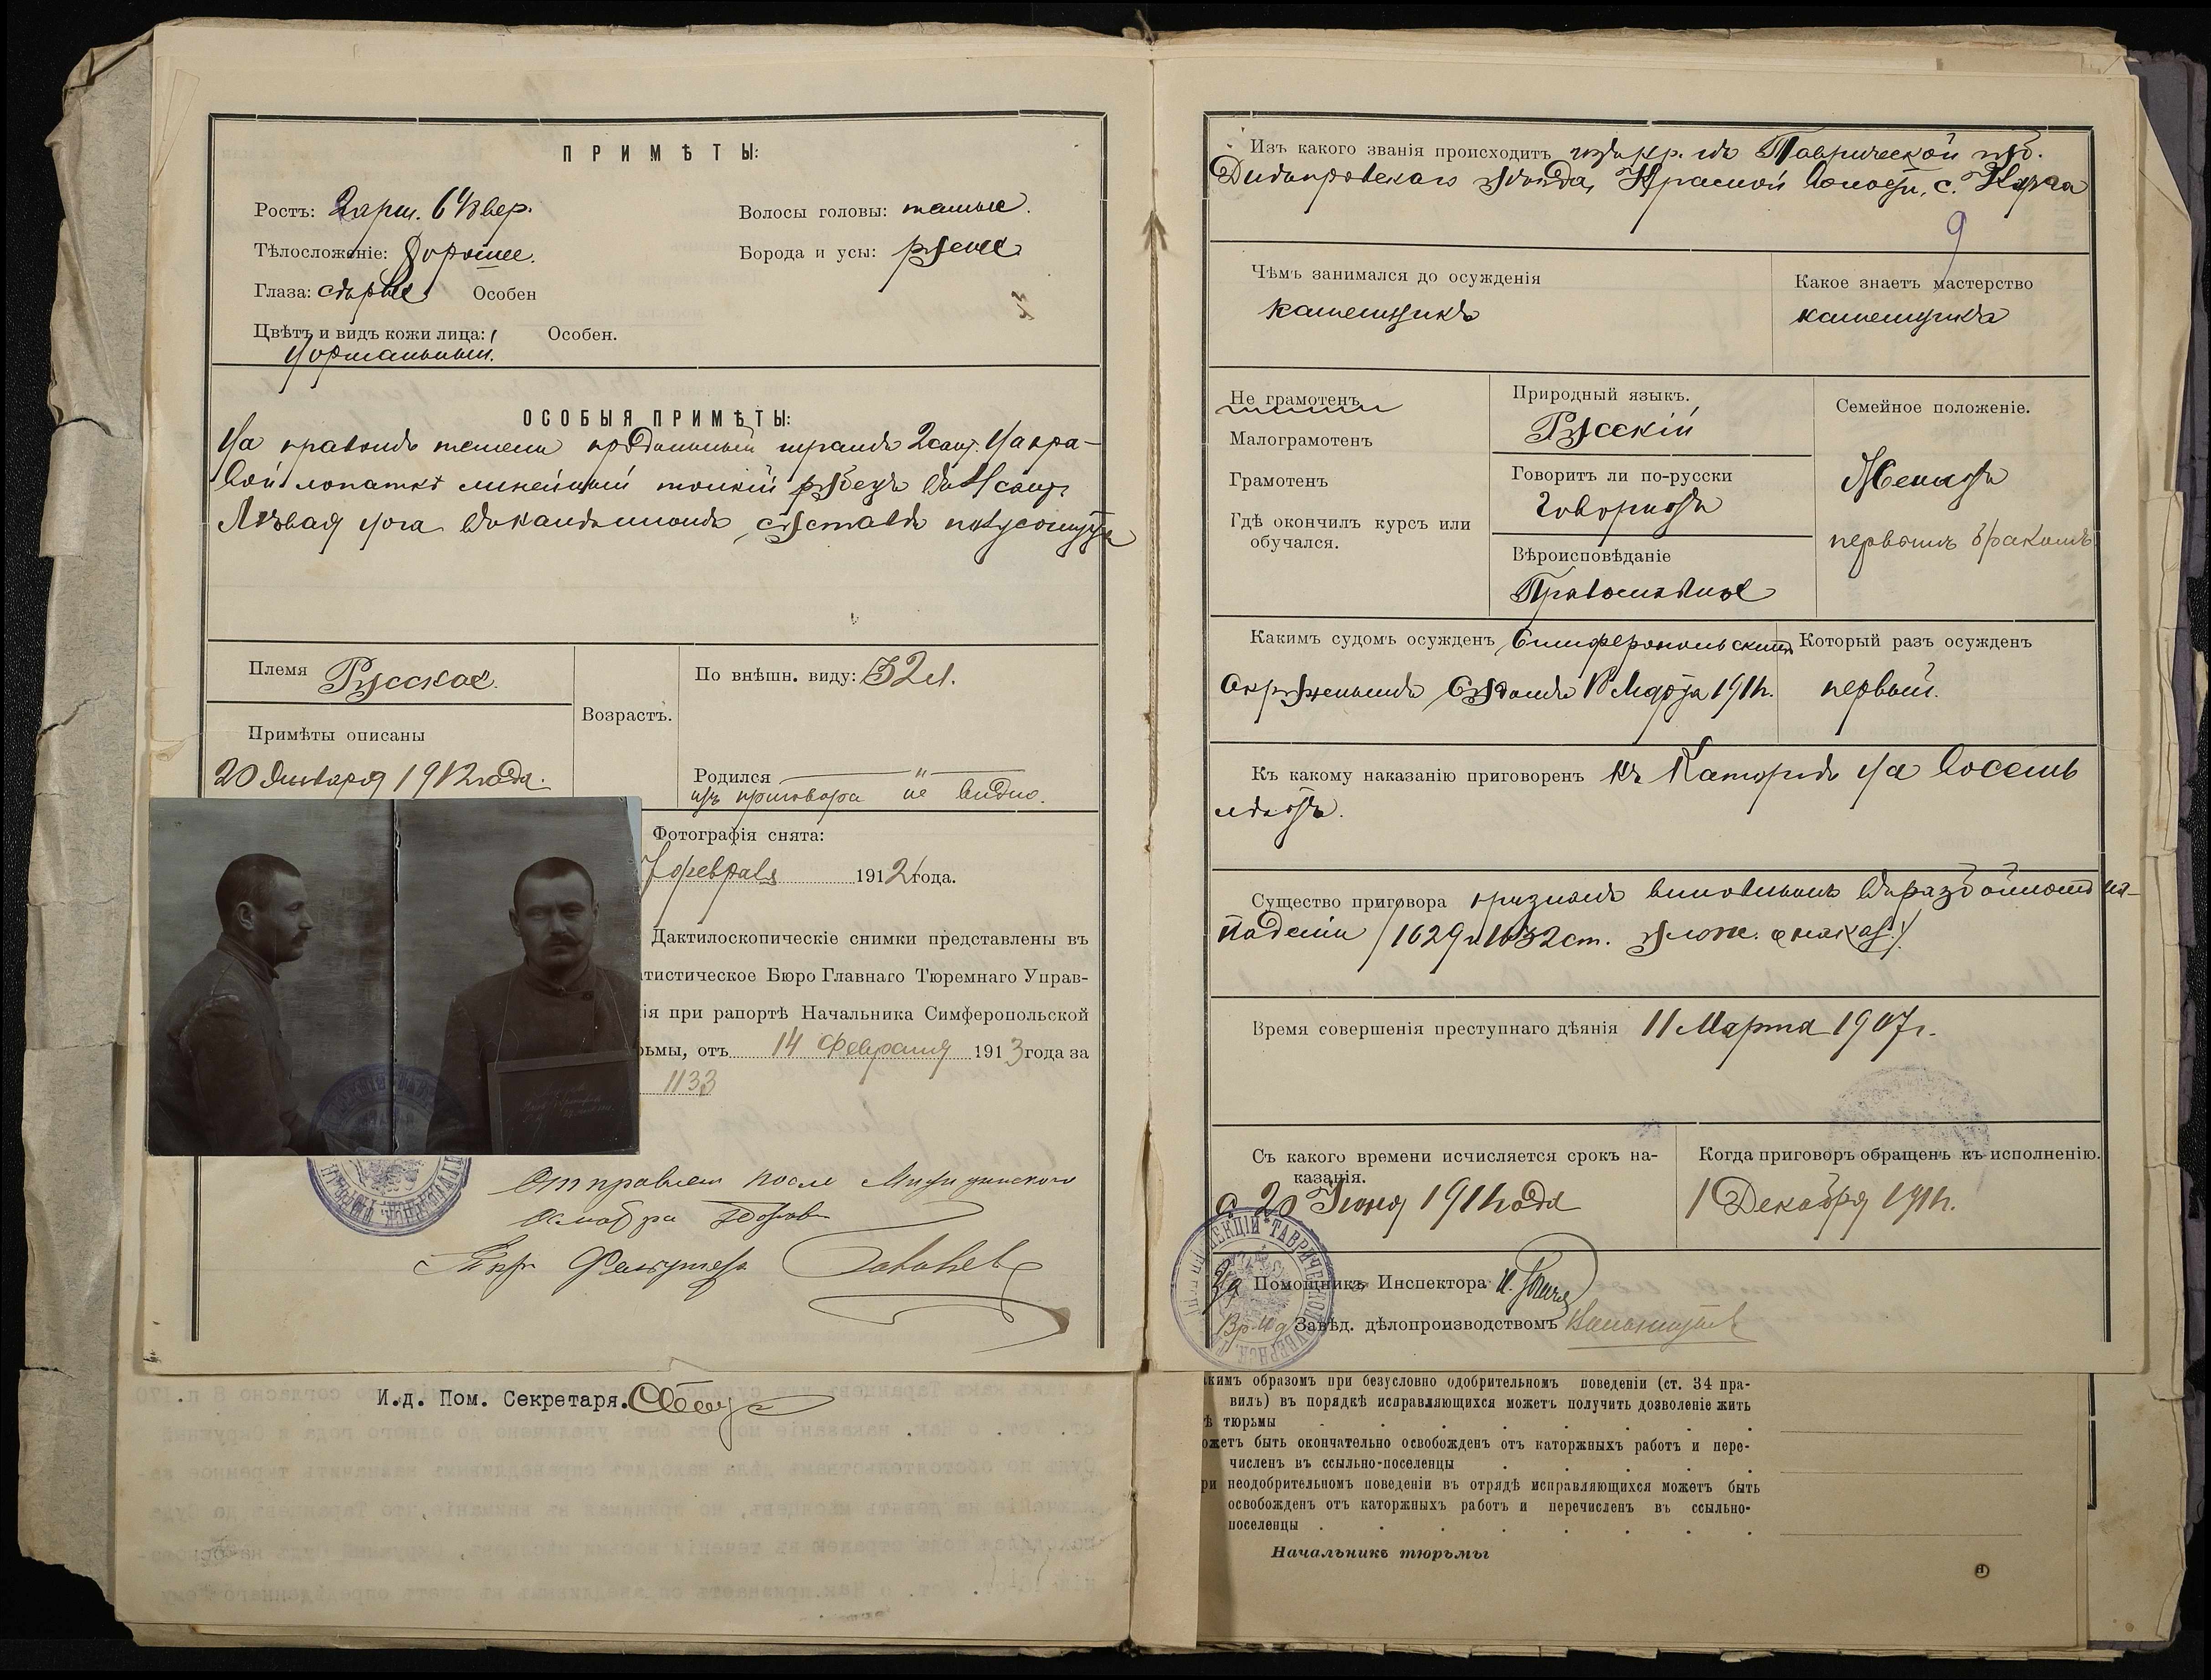 ПРИМѢТЫ:
Ростъ: 2 арш. 6 4/8 вер.
Волосы головы: темные.
Тѣлосложеніе: Хорошее.
Борода и усы: русые
Глаза: сѣрые Особен
Цвѣтъ и видъ кожи лица: Особен.
Нормальный.
ОСОБЫЯ ПРИМѢТЫ:
На правомъ темени продольный шрамъ 2 сант. На пра-
вой лопаткѣ линейный тонкій рубецъ въ 4 сант.
Лѣвая нога въ суставѣ полусогнута
Племя Русское.
Возрастъ.
По внѣшн. виду: 32 л.
Примѣты описаны
20 Января 1912 года.
Родился — " —
изъ приговора не видно.
Фотографія снята:
7 февраля 1912 года.
Дактилоскопическіе снимки представлены въ
тистическое Бюро Главнаго Тюремнаго Управ-
ія при рапортѣ Начальника Симферопольской
рьмы, отъ 14 Февраля 1913 года за
1133
Отправлен после
осмотра здоров
Тюр. Фельдшер
И.д. Пом. Секретаря.
Изъ какого званія происходитъ изъ кр-нъ Таврической губ.
Днѣпровскаго уѣзда, волости, с.
9
Чѣмъ занимался до осужденія
каменщикъ
Какое знаетъ мастерство
каменщика
Не грамотенъ
Малограмотенъ
Грамотенъ
Гдѣ окончилъ курсъ или
обучался.
Природный языкъ.
Русскій
Говоритъ ли по-русски
Говоритъ
Вѣроисповѣданіе
Православное
Семейное положеніе.
Женатъ
первымъ бракомъ
Какимъ судомъ осужденъ Симферопольскимъ
Окружнымъ Судомъ 18 Марта 1911 г.
Который разъ осужденъ
первый.
Къ какому наказанію приговоренъ къ Каторгѣ на восемь
лѣтъ.
Существо приговора признанъ виновнымъ въ разбойномъ на-
паденіи /1629 и 1632 ст. улож. о наказ./
Время совершенія преступнаго дѣянія 11 Марта 1907 г.
Съ какого времени исчисляется срокъ на-
казанія.
с 20 Іюня 1911 года
Когда приговоръ обращенъ къ исполненію.
1 Декабря 1911 г.
За Помощникъ Инспектора
Вр. И д Завѣд. дѣлопроизводствомъ
кимъ образомъ при безусловно одобрительномъ поведеніи (ст. 34 пра-
вилъ) въ порядкѣ исправляющихся можетъ получить дозволеніе жить
ѣ тюрьмы
ожетъ быть окончательно освобожденъ отъ каторжныхъ работъ и пере-
численъ въ ссыльно-поселенцы
ри неодобрительномъ поведеніи въ отрядѣ исправляющихся можетъ быть
освобожденъ отъ каторжныхъ работъ и перечисленъ въ ссыльно-
поселенцы
Начальникъ тюрьмы